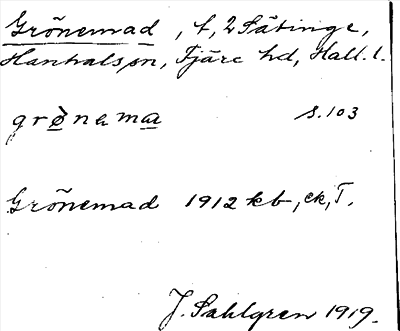 Grönemad, t, 2 Sätinge,
Hanhals sn, Fjäre hd, Hall. l.
grònama s. 103
Grönemad 1912 kb, ek, T.
J. Sahlgren 1919.